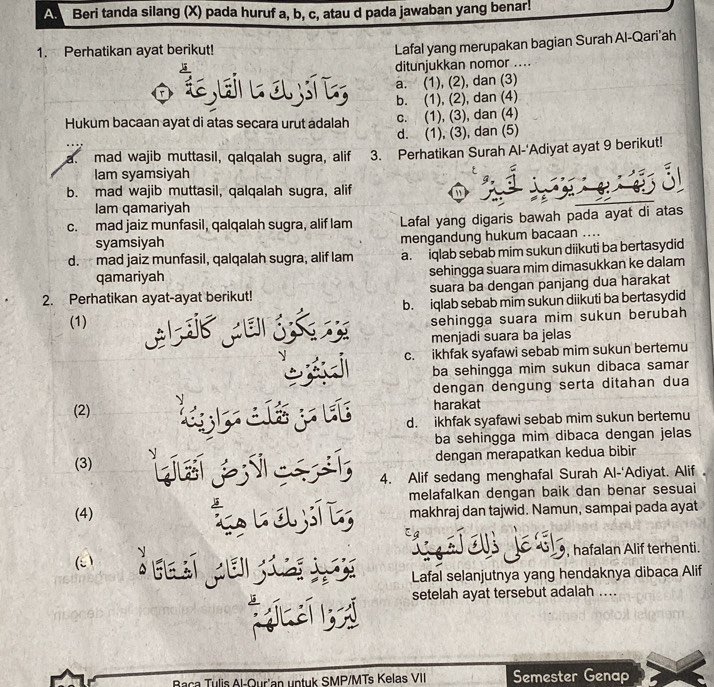 A. Beri tanda silang (X) pada huruf a, b, c, atau d pada jawaban yang benar!
1. Perhatikan ayat berikut!
وَمَآ اَدْرٰىكَ مَا الْقَارِعَةُ ۗ ٣
Hukum bacaan ayat di atas secara urut adalah
....
a. mad wajib muttasil, qalqalah sugra, alif
lam syamsiyah
b. mad wajib muttasil, qalqalah sugra, alif
lam qamariyah
c. mad jaiz munfasil, qalqalah sugra, alif lam
syamsiyah
d. mad jaiz munfasil, qalqalah sugra, alif lam
qamariyah
2. Perhatikan ayat-ayat berikut!
(1) يَوْمَ يَكُوْنُ النَّاسُ كَالْفَرَاشِ
الْمَبْثُوْثِۙ
(2) فَاَمَّا مَنْ ثَقُلَتْ مَوَازِيْنُهٗۙ
(3) وَاَخْرَجَتِ الْاَرْضُ اَثْقَالَهَاۙ
(4) وَمَآ اَدْرٰىكَ مَا هِيَهْۗ
(5) يَوْمَىِٕذٍ يَّصْدُرُ النَّاسُ اَشْتَاتًا ەۙ
لِّيُرَوْا اَعْمَالَهُمْۗ
Lafal yang merupakan bagian Surah Al-Qari'ah
ditunjukkan nomor ....
a. (1), (2), dan (3)
b. (1), (2), dan (4)
c. (1), (3), dan (4)
d. (1), (3), dan (5)
3. Perhatikan Surah Al-'Adiyat ayat 9 berikut!
اِنَّ رَبَّهُمْ بِهِمْ يَوْمَىِٕذٍ لَّخَبِيْرٌ ࣖ ١١
Lafal yang digaris bawah pada ayat di atas
mengandung hukum bacaan ....
a. iqlab sebab mim sukun diikuti ba bertasydid
sehingga suara mim dimasukkan ke dalam
suara ba dengan panjang dua harakat
b. iqlab sebab mim sukun diikuti ba bertasydid
sehingga suara mim sukun berubah
menjadi suara ba jelas
c. ikhfak syafawi sebab mim sukun bertemu
ba sehingga mim sukun dibaca samar
dengan dengung serta ditahan dua
harakat
d. ikhfak syafawi sebab mim sukun bertemu
ba sehingga mim dibaca dengan jelas
dengan merapatkan kedua bibir
4. Alif sedang menghafal Surah Al-'Adiyat. Alif
melafalkan dengan baik dan benar sesuai
makhraj dan tajwid. Namun, sampai pada ayat
وَاِنَّهٗ عَلٰى ذٰلِكَ لَشَهِيْدٌۚ, hafalan Alif terhenti.
Lafal selanjutnya yang hendaknya dibaca Alif
setelah ayat tersebut adalah ....
Baca Tulis Al-Qur'an untuk SMP/MTs Kelas VII
Semester Genap